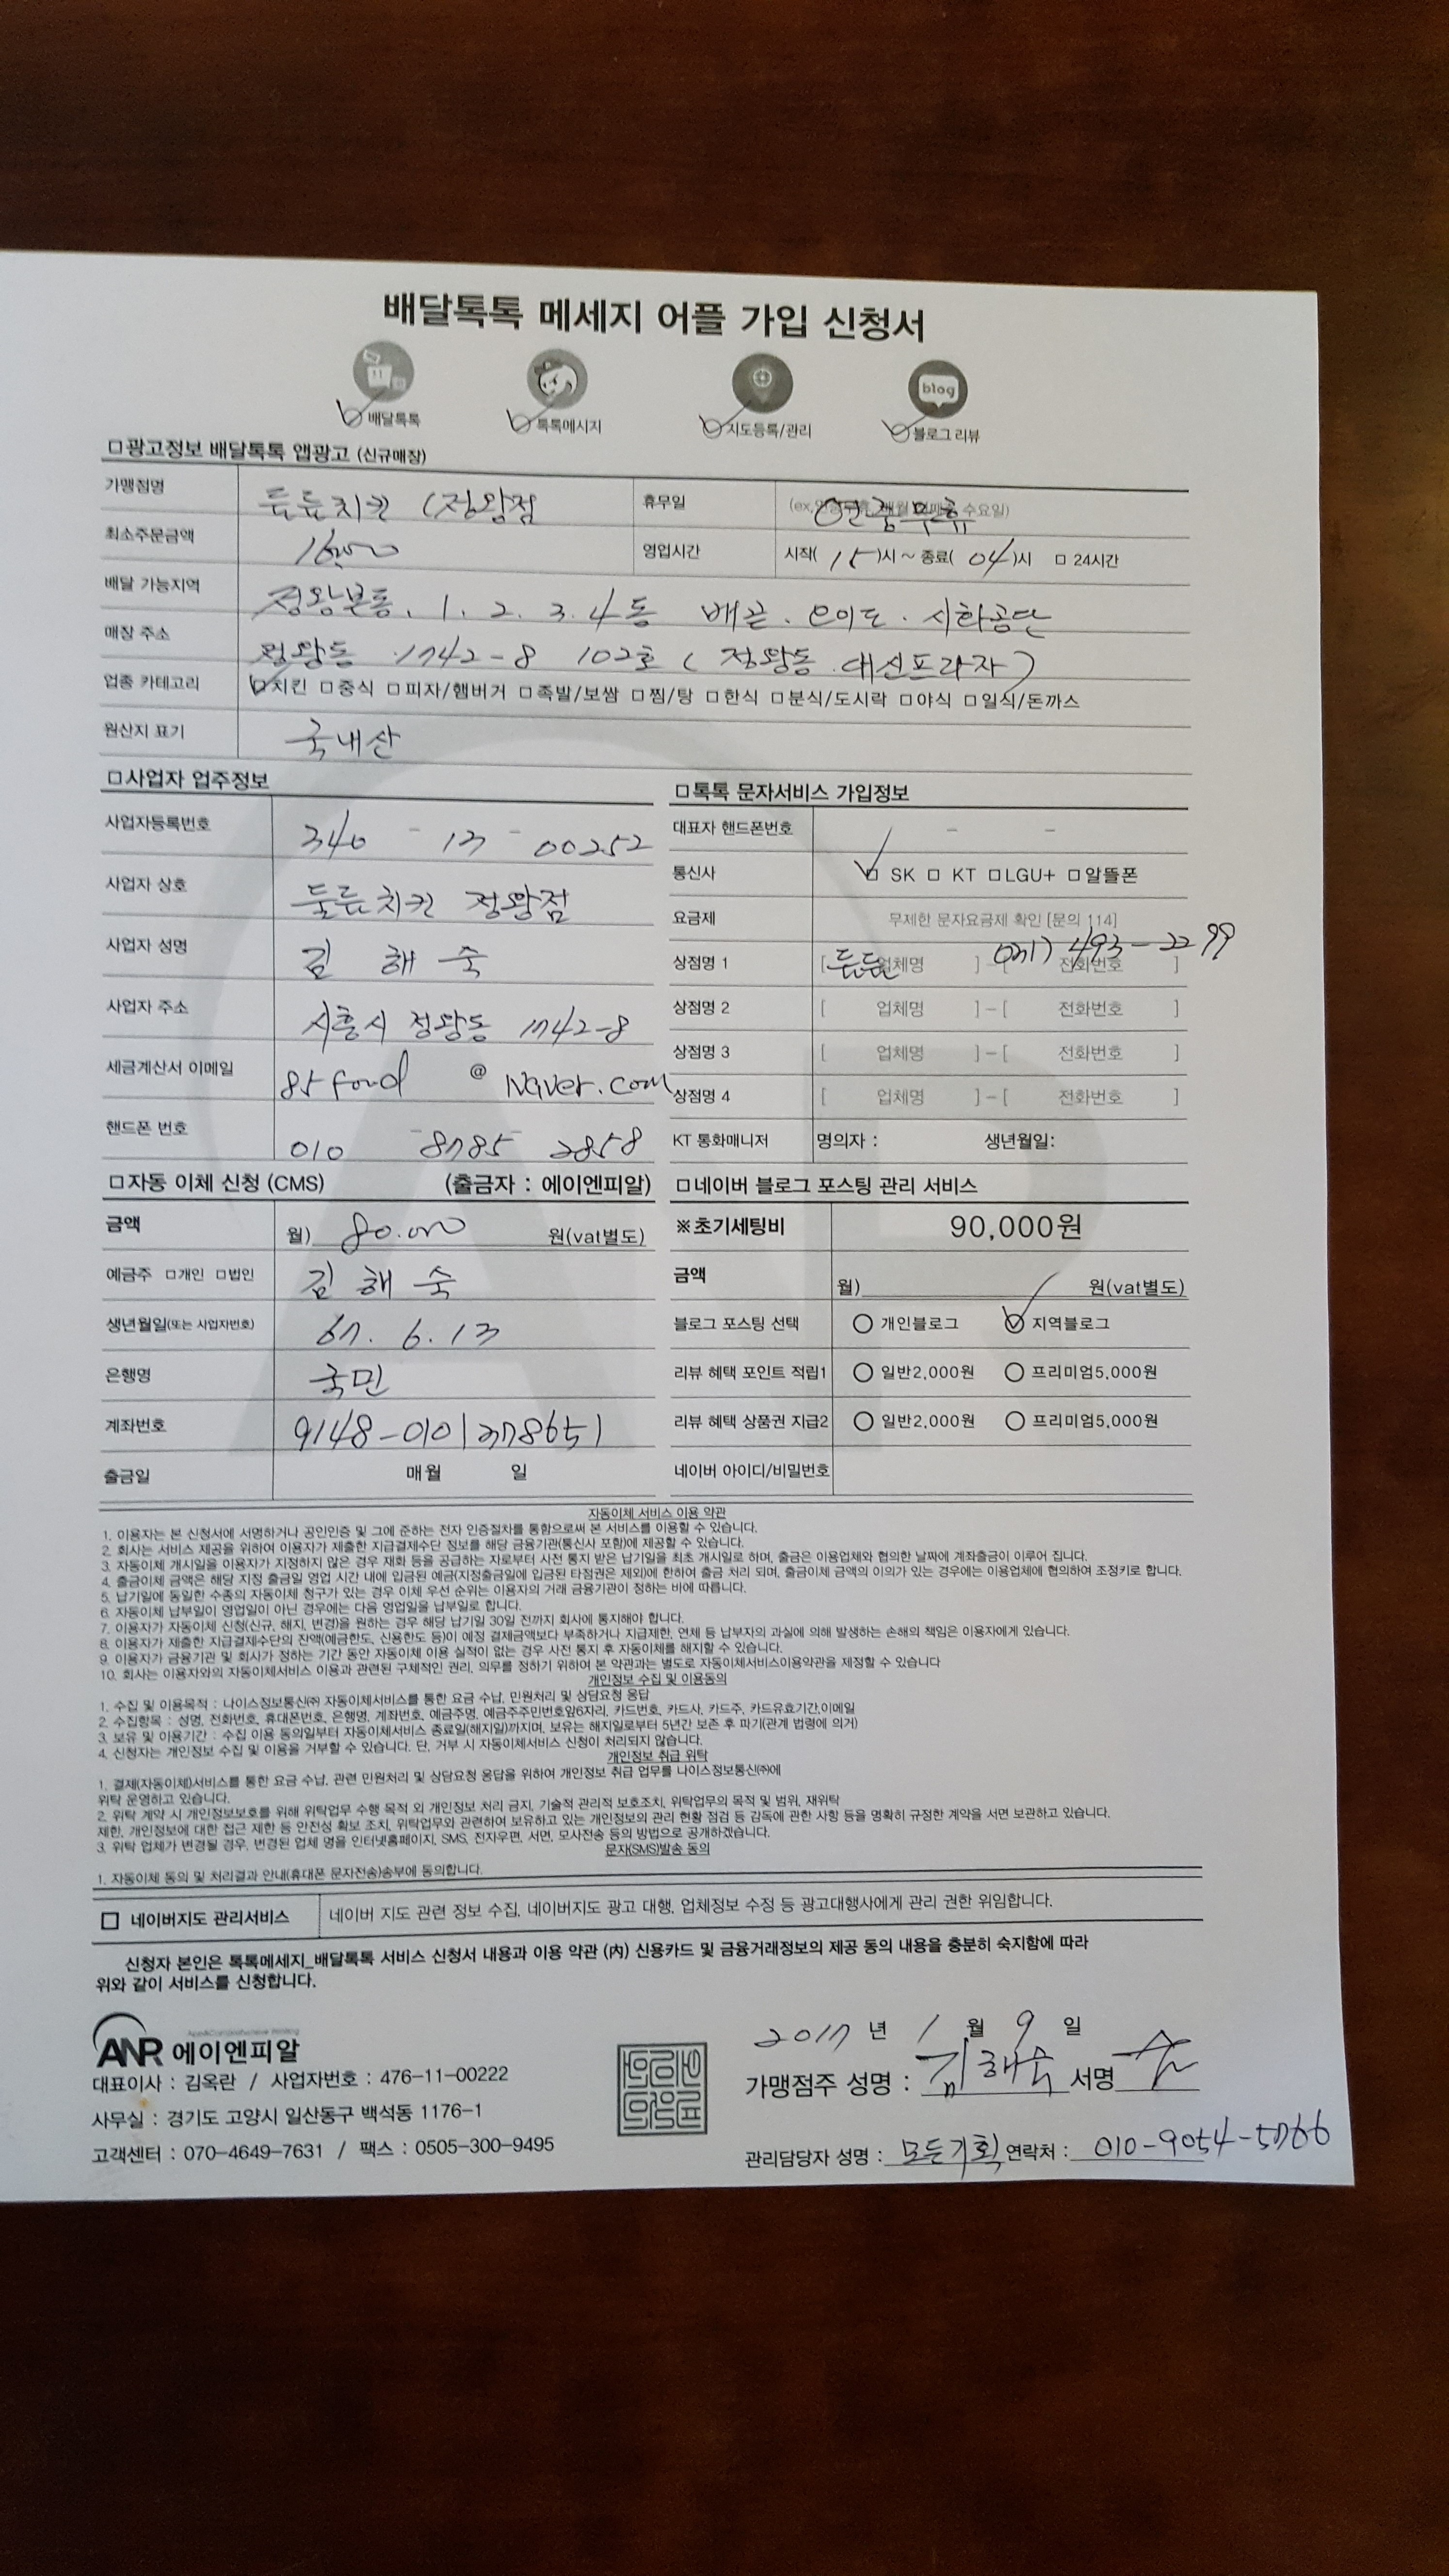 배달톡톡 메세지 어플 가입 신청서
blog
배달톡톡 톡톡메시지 지도등록/관리 블로그 리뷰
□광고정보 배달톡톡 앱광고 (신규매장)
가맹점명 튼튼치킨 (정왕점 휴무일 연중무휴
최소주문금액 영업시간 시작( 15 )시 ~ 종료( 04 )시 □ 24시간
배달 가능지역 정왕본동, 1. 2. 3. 4동 배곧. 오이도. 시화공단
매장 주소 정왕동 1742-8 102호 ( 정왕동 대선프라자 )
업종 카테고리 □치킨 □중식 □피자/햄버거 □족발/보쌈 □찜/탕 □한식 □분식/도시락 □야식 □일식/돈까스
원산지 표기 국내산
□사업자 업주정보
사업자등록번호 340 - 13 - 00252
사업자 상호 튼튼치킨 정왕점
사업자 성명 김 해 숙
사업자 주소 시흥시 정왕동 1742-8
세금계산서 이메일 85food @ Naver.com
핸드폰 번호 010 - 8785 - 2858
□톡톡 문자서비스 가입정보
대표자 핸드폰번호 - -
통신사 □ SK □ KT □LGU+ □알뜰폰
요금제 무제한 문자요금제 확인 [문의 114]
상점명 1 [ 튼튼 업체명 ] - [ 031) 493-2299 전화번호 ]
상점명 2 [ 업체명 ] - [ 전화번호 ]
상점명 3 [ 업체명 ] - [ 전화번호 ]
상점명 4 [ 업체명 ] - [ 전화번호 ]
KT 통화매니저 명의자 : 생년월일:
□자동 이체 신청 (CMS) (출금자 : 에이엔피알)
금액 월) 80.000 원(vat별도)
예금주 □개인 □법인 김 해 숙
생년월일(또는 사업자번호) 67. 6. 13
은행명 국민
계좌번호
출금일 매월 일
□네이버 블로그 포스팅 관리 서비스
※초기세팅비 90,000원
금액 월) 원(vat별도)
블로그 포스팅 선택 ○ 개인블로그 ○ 지역블로그
리뷰 혜택 포인트 적립1 ○ 일반2,000원 ○ 프리미엄5,000원
리뷰 혜택 상품권 지급2 ○ 일반2,000원 ○ 프리미엄5,000원
네이버 아이디/비밀번호
자동이체 서비스 이용 약관
1. 이용자는 본 신청서에 서명하거나 공인인증 및 그에 준하는 전자 인증절차를 통함으로써 본 서비스를 이용할 수 있습니다.
2. 회사는 서비스 제공을 위하여 이용자가 제출한 지급결제수단 정보를 해당 금융기관(통신사 포함)에 제공할 수 있습니다.
3. 자동이체 개시일을 이용자가 지정하지 않은 경우 재화 등을 공급하는 자로부터 사전 통지 받은 납기일을 최초 개시일로 하며, 출금은 이용업체와 협의한 날짜에 계좌출금이 이루어 집니다.
4. 출금이체 금액은 해당 지정 출금일 영업 시간 내에 입금된 예금(지정출금일에 입금된 타점권은 제외)에 한하여 출금 처리 되며, 출금이체 금액의 이의가 있는 경우에는 이용업체에 협의하여 조정키로 합니다.
5. 납기일에 동일한 수종의 자동이체 청구가 있는 경우 이체 우선 순위는 이용자의 거래 금융기관이 정하는 바에 따릅니다.
6. 자동이체 납부일이 영업일이 아닌 경우에는 다음 영업일을 납부일로 합니다.
7. 이용자가 자동이체 신청(신규, 해지, 변경)을 원하는 경우 해당 납기일 30일 전까지 회사에 통지해야 합니다.
8. 이용자가 제출한 지급결제수단의 잔액(예금한도, 신용한도 등)이 예정 결제금액보다 부족하거나 지급제한, 연체 등 납부자의 과실에 의해 발생하는 손해의 책임은 이용자에게 있습니다.
9. 이용자가 금융기관 및 회사가 정하는 기간 동안 자동이체 이용 실적이 없는 경우 사전 통지 후 자동이체를 해지할 수 있습니다.
10. 회사는 이용자와의 자동이체서비스 이용과 관련된 구체적인 권리, 의무를 정하기 위하여 본 약관과는 별도로 자동이체서비스이용약관을 제정할 수 있습니다
개인정보 수집 및 이용동의
1. 수집 및 이용목적 : 나이스정보통신㈜ 자동이체서비스를 통한 요금 수납, 민원처리 및 상담요청 응답
2. 수집항목 : 성명, 전화번호, 휴대폰번호, 은행명, 계좌번호, 예금주명, 예금주주민번호앞6자리, 카드번호, 카드사, 카드주, 카드유효기간,이메일
3. 보유 및 이용기간 : 수집 이용 동의일부터 자동이체서비스 종료일(해지일)까지며, 보유는 해지일로부터 5년간 보존 후 파기(관계 법령에 의거)
4. 신청자는 개인정보 수집 및 이용을 거부할 수 있습니다. 단, 거부 시 자동이체서비스 신청이 처리되지 않습니다.
개인정보 취급 위탁
1. 결제(자동이체)서비스를 통한 요금 수납, 관련 민원처리 및 상담요청 응답을 위하여 개인정보 취급 업무를 나이스정보통신㈜에
위탁 운영하고 있습니다.
2. 위탁 계약 시 개인정보보호를 위해 위탁업무 수행 목적 외 개인정보 처리 금지, 기술적 관리적 보호조치, 위탁업무의 목적 및 범위, 재위탁
제한, 개인정보에 대한 접근 제한 등 안전성 확보 조치, 위탁업무와 관련하여 보유하고 있는 개인정보의 관리 현황 점검 등 감독에 관한 사항 등을 명확히 규정한 계약을 서면 보관하고 있습니다.
3. 위탁 업체가 변경될 경우, 변경된 업체 명을 인터넷홈페이지, SMS, 전자우편, 서면, 모사전송 등의 방법으로 공개하겠습니다.
문자(SMS)발송 동의
1. 자동이체 동의 및 처리결과 안내(휴대폰 문자전송)송부에 동의합니다.
□ 네이버지도 관리서비스 네이버 지도 관련 정보 수집, 네이버지도 광고 대행, 업체정보 수정 등 광고대행사에게 관리 권한 위임합니다.
신청자 본인은 톡톡메세지_배달톡톡 서비스 신청서 내용과 이용 약관 (內) 신용카드 및 금융거래정보의 제공 동의 내용을 충분히 숙지함에 따라
위와 같이 서비스를 신청합니다.
ANR 에이엔피알
대표이사 : 김옥란 / 사업자번호 : 476-11-00222
사무실 : 경기도 고양시 일산동구 백석동 1176-1
고객센터 : 070-4649-7631 / 팩스 : 0505-300-9495
2017 년 1 월 9 일
가맹점주 성명 : 김해숙 서명
관리담당자 성명 : 모든기획 연락처 : 010-9054-5766